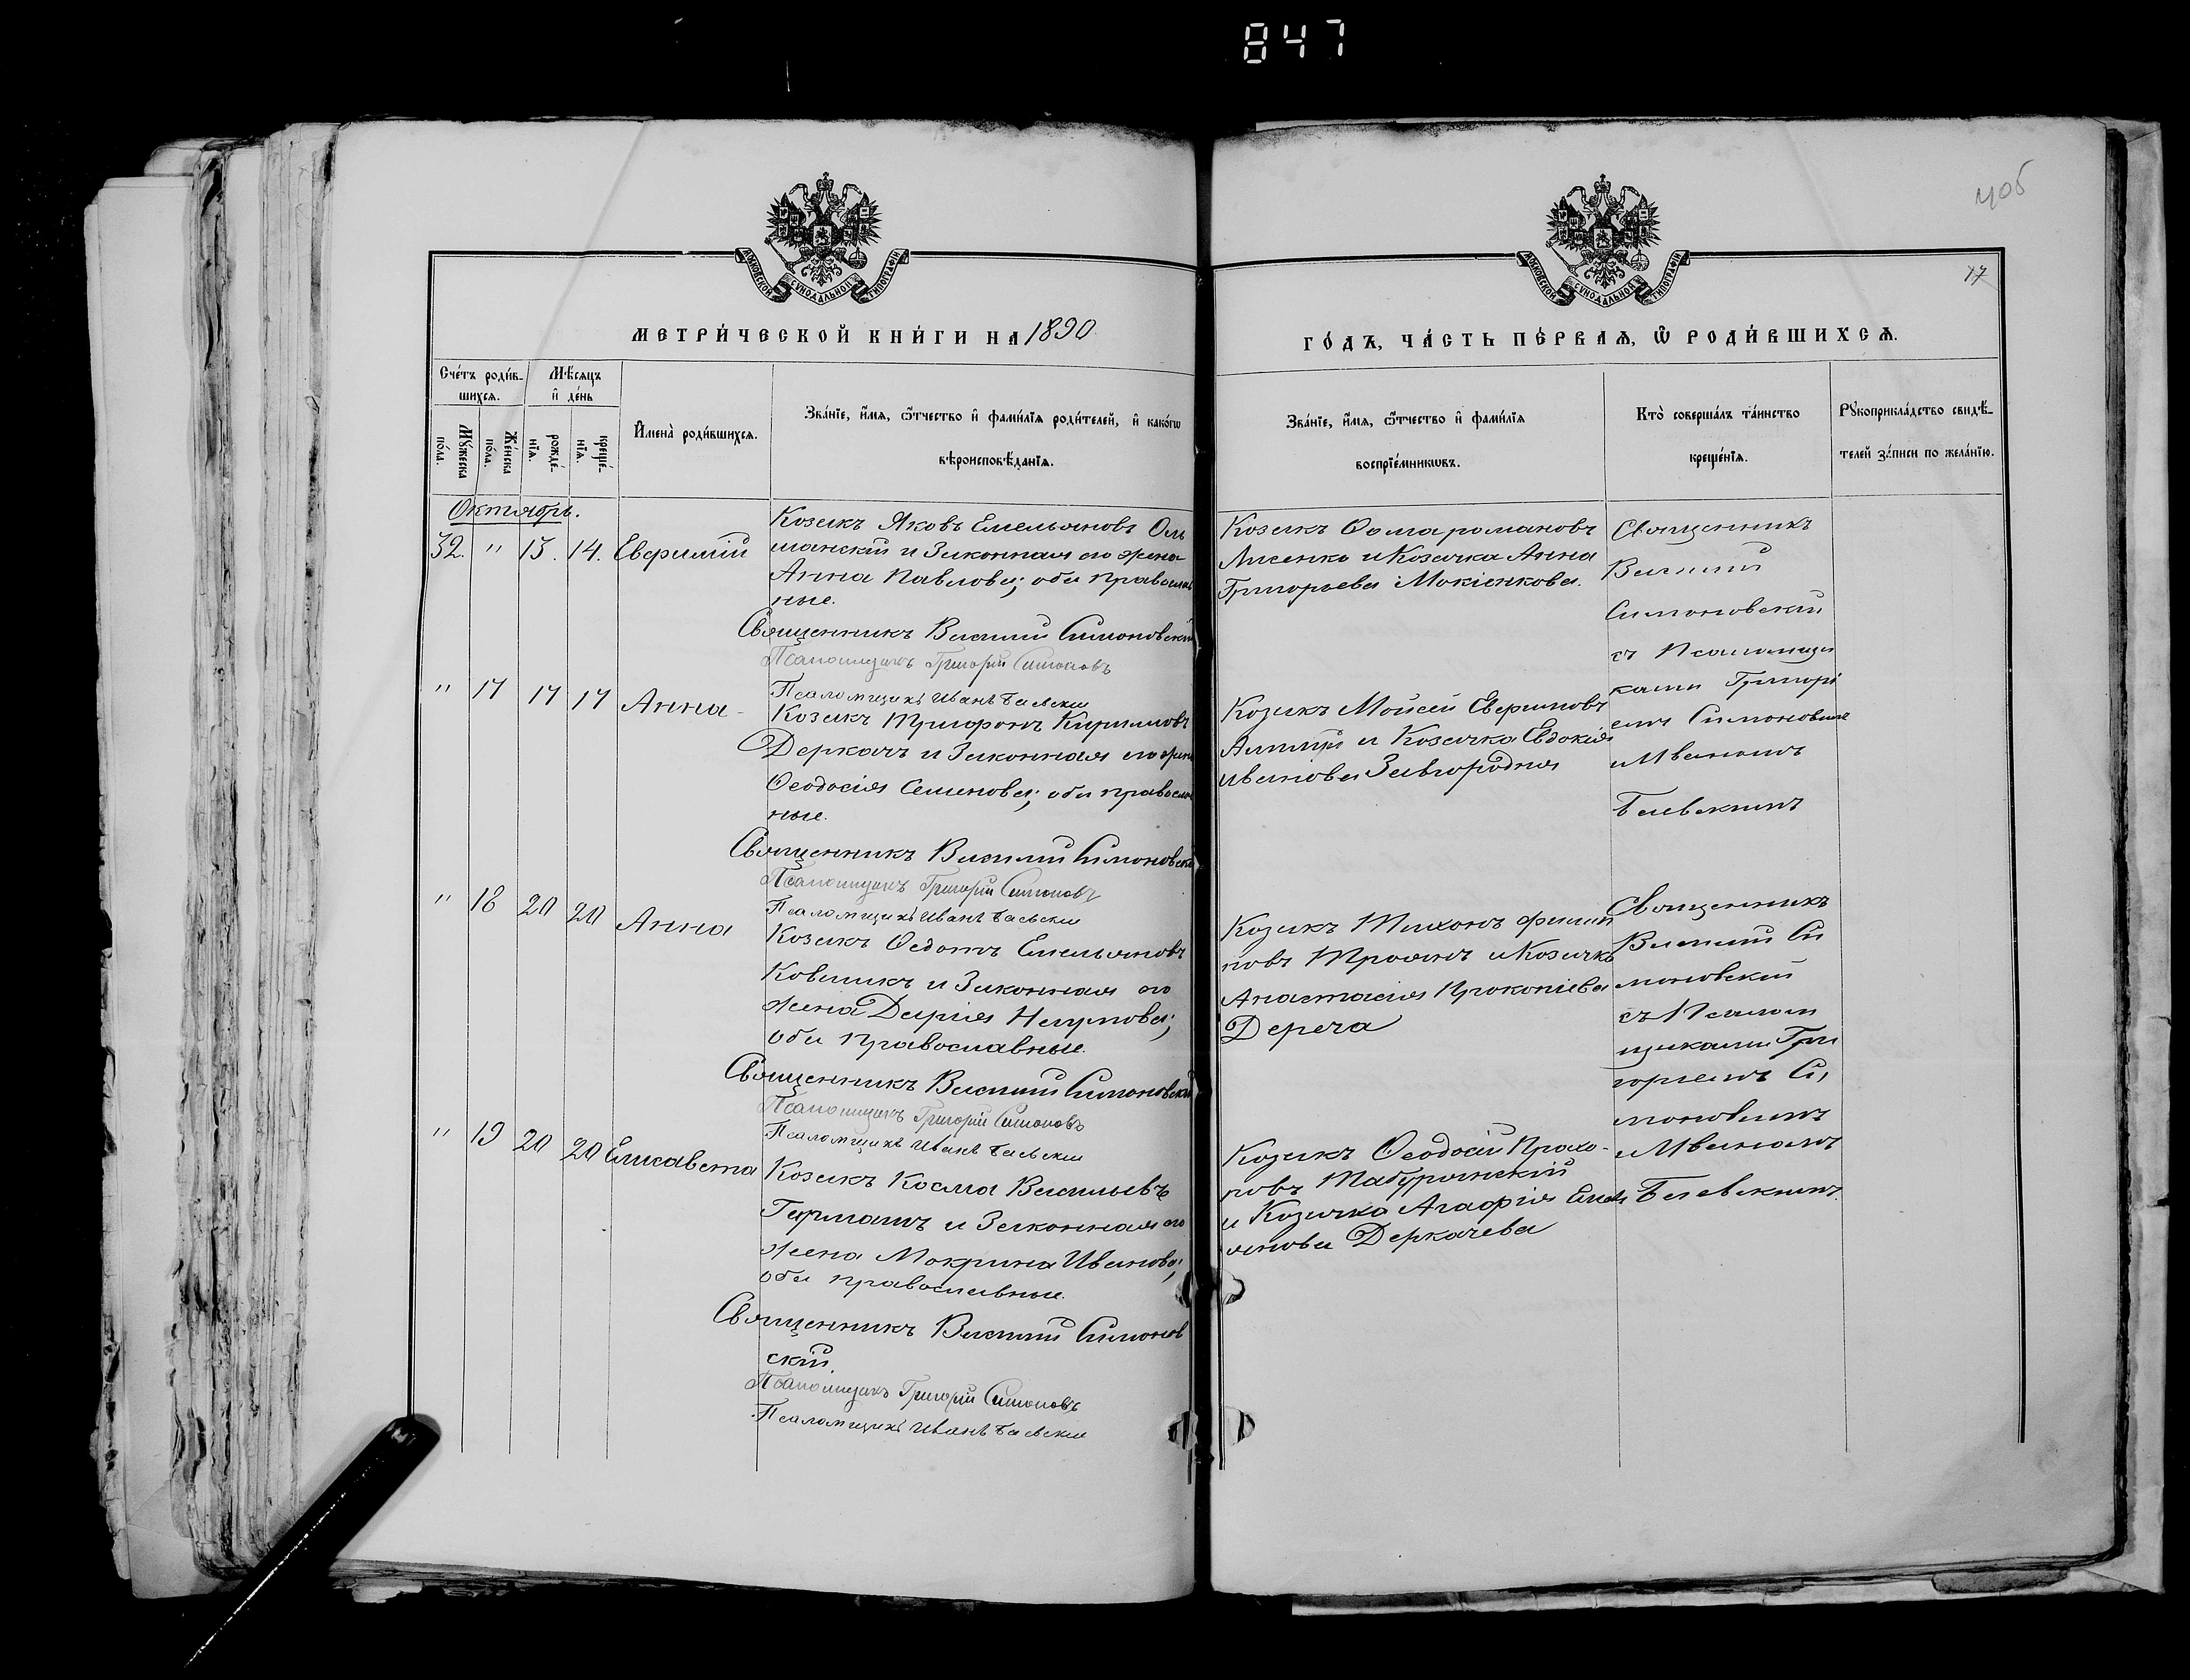 847
405
17
МОСКОВСКОЙ СѴНОДАЛЬНОЙ ТИПОГРАФІИ
МОСКОВСКОЙ СѴНОДАЛЬНОЙ ТИПОГРАФІИ
МЕТРИ́ЧЕСКОЙ КНИ́ГИ НА 1890
ГО́ДЪ, ЧА́СТЬ ПЕ́РВАѦ, Ѿ РОДИ́ВШИХСѦ.
Сче́тъ роди́в-
шихсѧ.
Мѣ́сѧцъ
и҆ де́нь
Мꙋ́жеска
по́ла.
Же́нска
по́ла.
рожде́-
нїѧ.
креще́-
нїѧ.
И҆мена̀ роди́вшихсѧ.
Зва́нїе, и҆́мѧ, ѻ҆́тчество и҆ фами́лїѧ роди́телей, и҆ како́гѡ
вѣроисповѣ́данїѧ.
Зва́нїе, и҆́мѧ, ѻ҆́тчество и҆ фами́лїѧ
воспрїе́мникѡвъ.
Кто̀ соверша́лъ та́инство
креще́нїѧ.
Рꙋкоприкла́дство свидѣ́-
телей за́писи по жела́нїю.
Октябрь.
32. " 13. 14. Евфимій
Козакъ Яковъ Емельяновъ Оль
шанскій и Законная его жена
Анна Павлова; оба православ
ные.
Священникъ Василій Симоновскій
Псаломщикъ Григорій Симоновъ
Псаломщикъ Иванъ Баевскій
Козакъ Ѳома романовъ
Лисенко и Козачка Анна
Григорьева Мокіенкова.
Священникъ
Василій
Симоновскій
съ Псаломщи
ками Григорі
емъ Симоновымъ
и Иваномъ
Баевскимъ
" 17 17 17 Анна
Козакъ Трифонъ Кириловъ
Деркачъ и Законная его жена
Ѳеодосія Семенова; оба православ
ные.
Священникъ Василій Симоновскій
Псаломщикъ Григорій Симоновъ
Псаломщикъ Иванъ Баевскій
Козакъ Мойсей Евфимовъ
и Козачка Евдокія
Иванова Завгородняя
" 18 20 20 Анна
Козакъ Ѳедотъ Емельяновъ
Коваликъ и Законная его
жена Дарія Наумова;
оба Православные.
Священникъ Василій Симоновскій
Псаломщикъ Григорій Симоновъ
Псаломщикъ Иванъ Баевскій
Козакъ Тихонъ Филип
повъ Троянъ и Козачка
Анастасія Прокопіева
Дереча
Священникъ
Василій Си
моновскій
съ Псалом
щиками Гри
горіемъ Си
моновымъ
и Иваномъ
Баевскимъ.
" 19 20 20 Елисавета
Козакъ Косма Васильевъ
Гарманъ и Законная его
жена Мокрина Иванова;
оба православные.
Священникъ Василій Симонов
скій.
Псаломщикъ Григорій Симоновъ
Псаломщикъ Иванъ Баевскій
Козакъ Ѳеодосій Прохо-
ровъ Табурянскій
и Козачка Агафія Емель
янова Деркачева